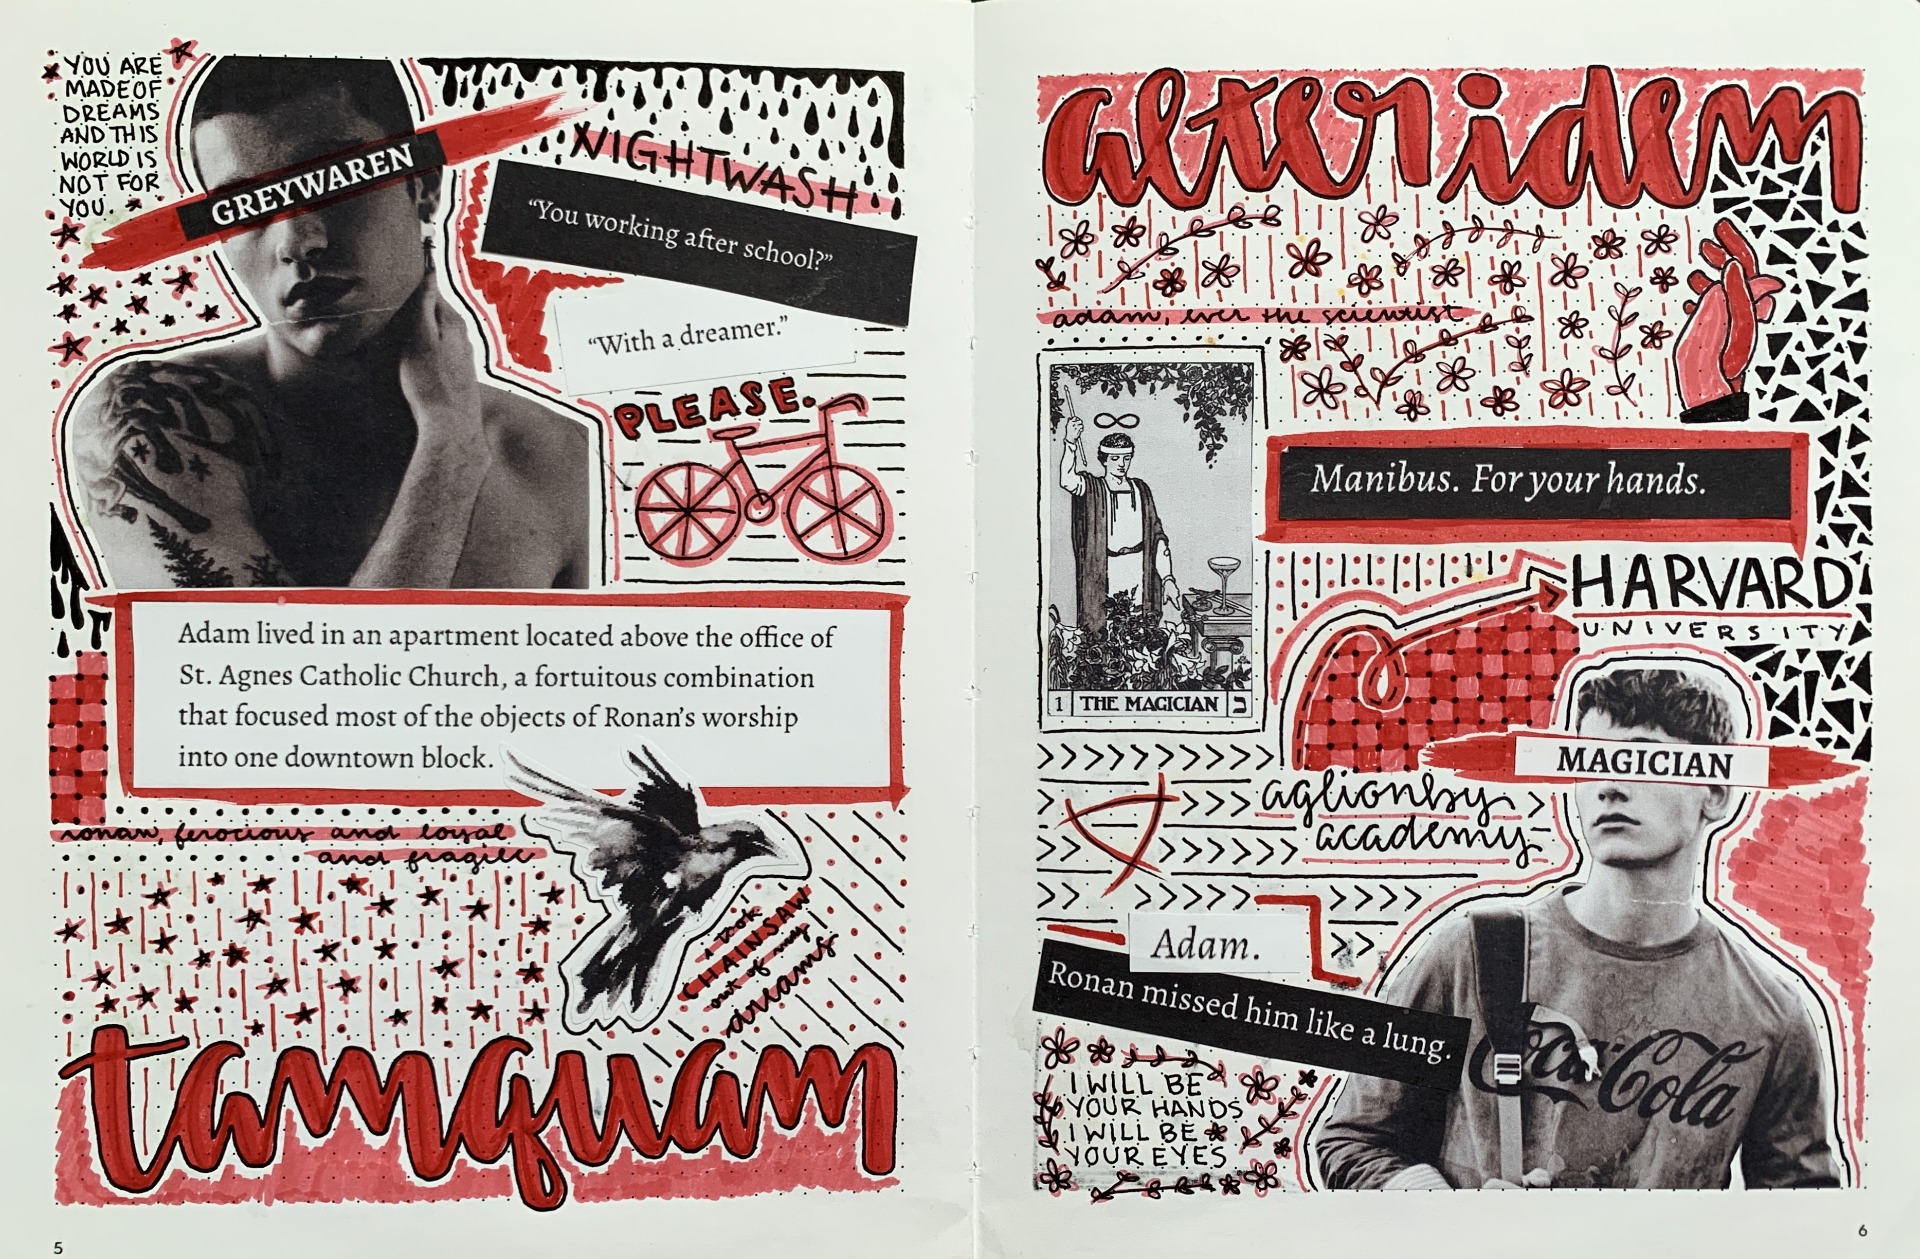 YOU ARE
MADE OF
DREAMS
AND THIS
WORLD IS
NOT FOR
YOU.
GREYWAREN
NIGHTWASH
“You working after school?”
“With a dreamer.”
PLEASE.
Adam lived in an apartment located above the office of
St. Agnes Catholic Church, a fortuitous combination
that focused most of the objects of Ronan’s worship
into one downtown block.
ronan, ferocious and loyal
and fragile
i took
CHAINSAW
out of my
dreams
tamquam
5
alter idem
adam, ever the scientist
1 THE MAGICIAN ב
Manibus. For your hands.
HARVARD
UNIVERSITY
MAGICIAN
aglionby
academy
Adam.
Ronan missed him like a lung.
Coca-Cola
I WILL BE
YOUR HANDS
I WILL BE
YOUR EYES
6